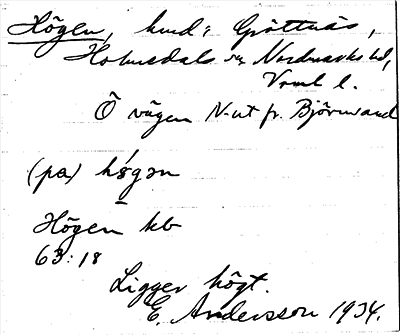 Högen, hmd: Gröttnäs,
Holmedals sn, Nordmarks hd,
Vrml l.
Ö vägen N-ut fr. Björnvand
(pa) högən
Högen kb
63:18
Ligger högt.
E. Andersson 1934.